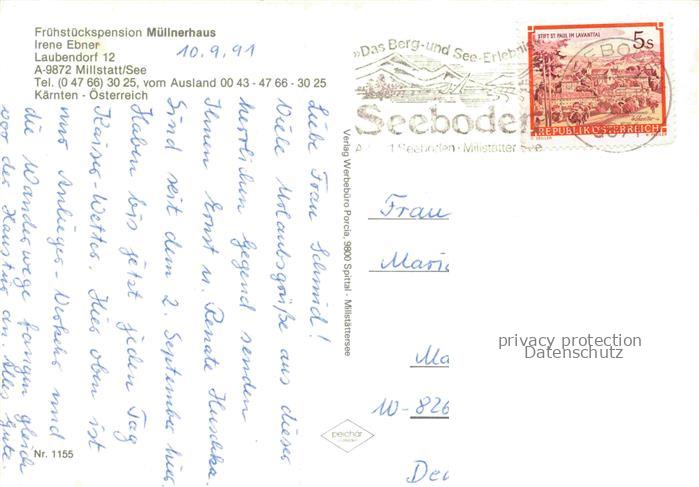 Frühstückspension Müllnerhaus
Irene Ebner
Laubendorf 12
A-9872 Millstatt/See
Tel. (0 47 66) 30 25, vom Ausland 00 43 - 47 66 - 30 25
Kärnten - Österreich
10.9.91
Liebe Frau Schmid!
Viele Urlaubsgrüße aus dieser
herrlichen Gegend senden
Ihnen Ernst u. Renate
Sind seit dem 2. September hier.
Haben bis jetzt jeden Tag
Kaiser-Wetter. Hier oben ist
nur Anlieger-Verkehr und
die Wanderwege fangen gleich
vor der Haustür an. Alles Gute.
Nr. 1155
Verlag Werbebüro Porcia, 9800 Spittal - Millstättersee
peichär
»Das Berg-und See-Erlebnis
Seeboden
Seeboden · Millstätter See
STIFT ST. PAUL IM LAVANTTAL
5 S
REPUBLIK ÖSTERREICH
SEEBO
Frau
Mari
Ma
W-826
Deu
privacy protection
Datenschutz